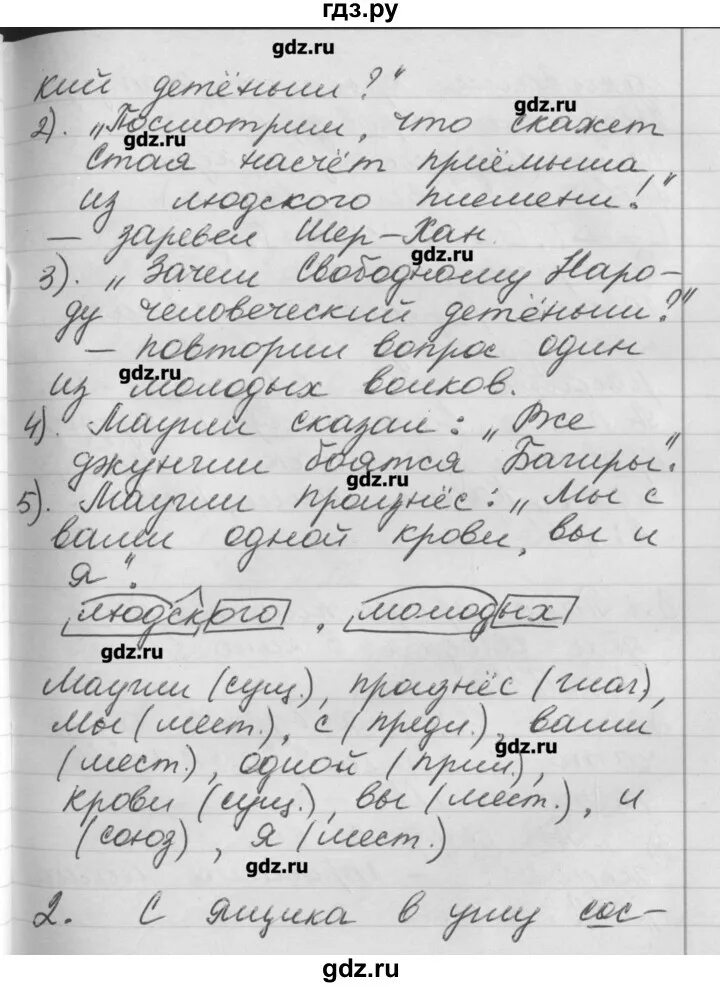 гдз.ру
gdz.ru
кий детёныш?"
gdz.ru
2). „Посмотрим, что скажет
gdz.ru
Стая насчёт приёмыша
из людского племени!"
— заревел Шер-Хан.
gdz.ru
3). „Зачем Свободному Наро-
ду человеческий детёныш?"
— повторил вопрос один
gdz.ru
из молодых волков.
4). Маугли сказал: „Все
джунгли боятся Багиры".
gdz.ru
5). Маугли произнёс: „Мы с
вами одной крови, вы и
я".
людского, молодых
gdz.ru
Маугли (сущ.), произнёс (глаг),
Мы (мест.), с (предл.), вами
gdz.ru
(мест.), одной (прил.),
крови (сущ.), вы (мест.), и
(союз), я (мест.)
gdz.ru
2. С ящика в углу сос-
gdz.ru